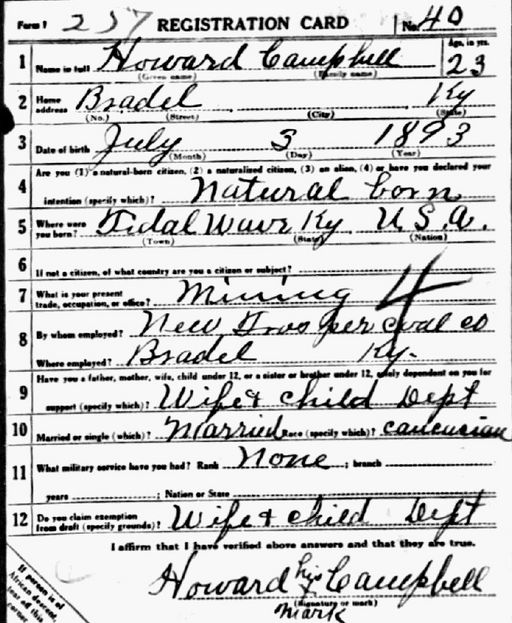 Form 1 257 REGISTRATION CARD No. 40
1 Name in full Howard Campbell Age, in yrs. 23
(Given name) (Family name)
2 Home address Bradel Ky
(No.) (Street) (City) (State)
3 Date of birth July 3 1893
(Month) (Day) (Year)
Are you (1) a natural-born citizen, (2) a naturalized citizen, (3) an alien, (4) or have you declared your
4 intention (specify which)? Natural born
5 Where were you born? Tidal Wave Ky U.S.A.
(Town) (State) (Nation)
6 If not a citizen, of what country are you a citizen or subject?
7 What is your present trade, occupation, or office? Mining 4
8 By whom employed? New Prosper coal co
Where employed? Bradel Ky.
9 Have you a father, mother, wife, child under 12, or a sister or brother under 12, solely dependent on you for
support (specify which)? Wife & child Dept
10 Married or single (which)? Married Race (specify which)? caucucian
11 What military service have you had? Rank None ; branch
years ; Nation or State
12 Do you claim exemption from draft (specify grounds)? Wife & child Dept
I affirm that I have verified above answers and that they are true.
Howard his x Campbell
(Signature or mark)
mark
If person is of
African descent,
tear off this
corner